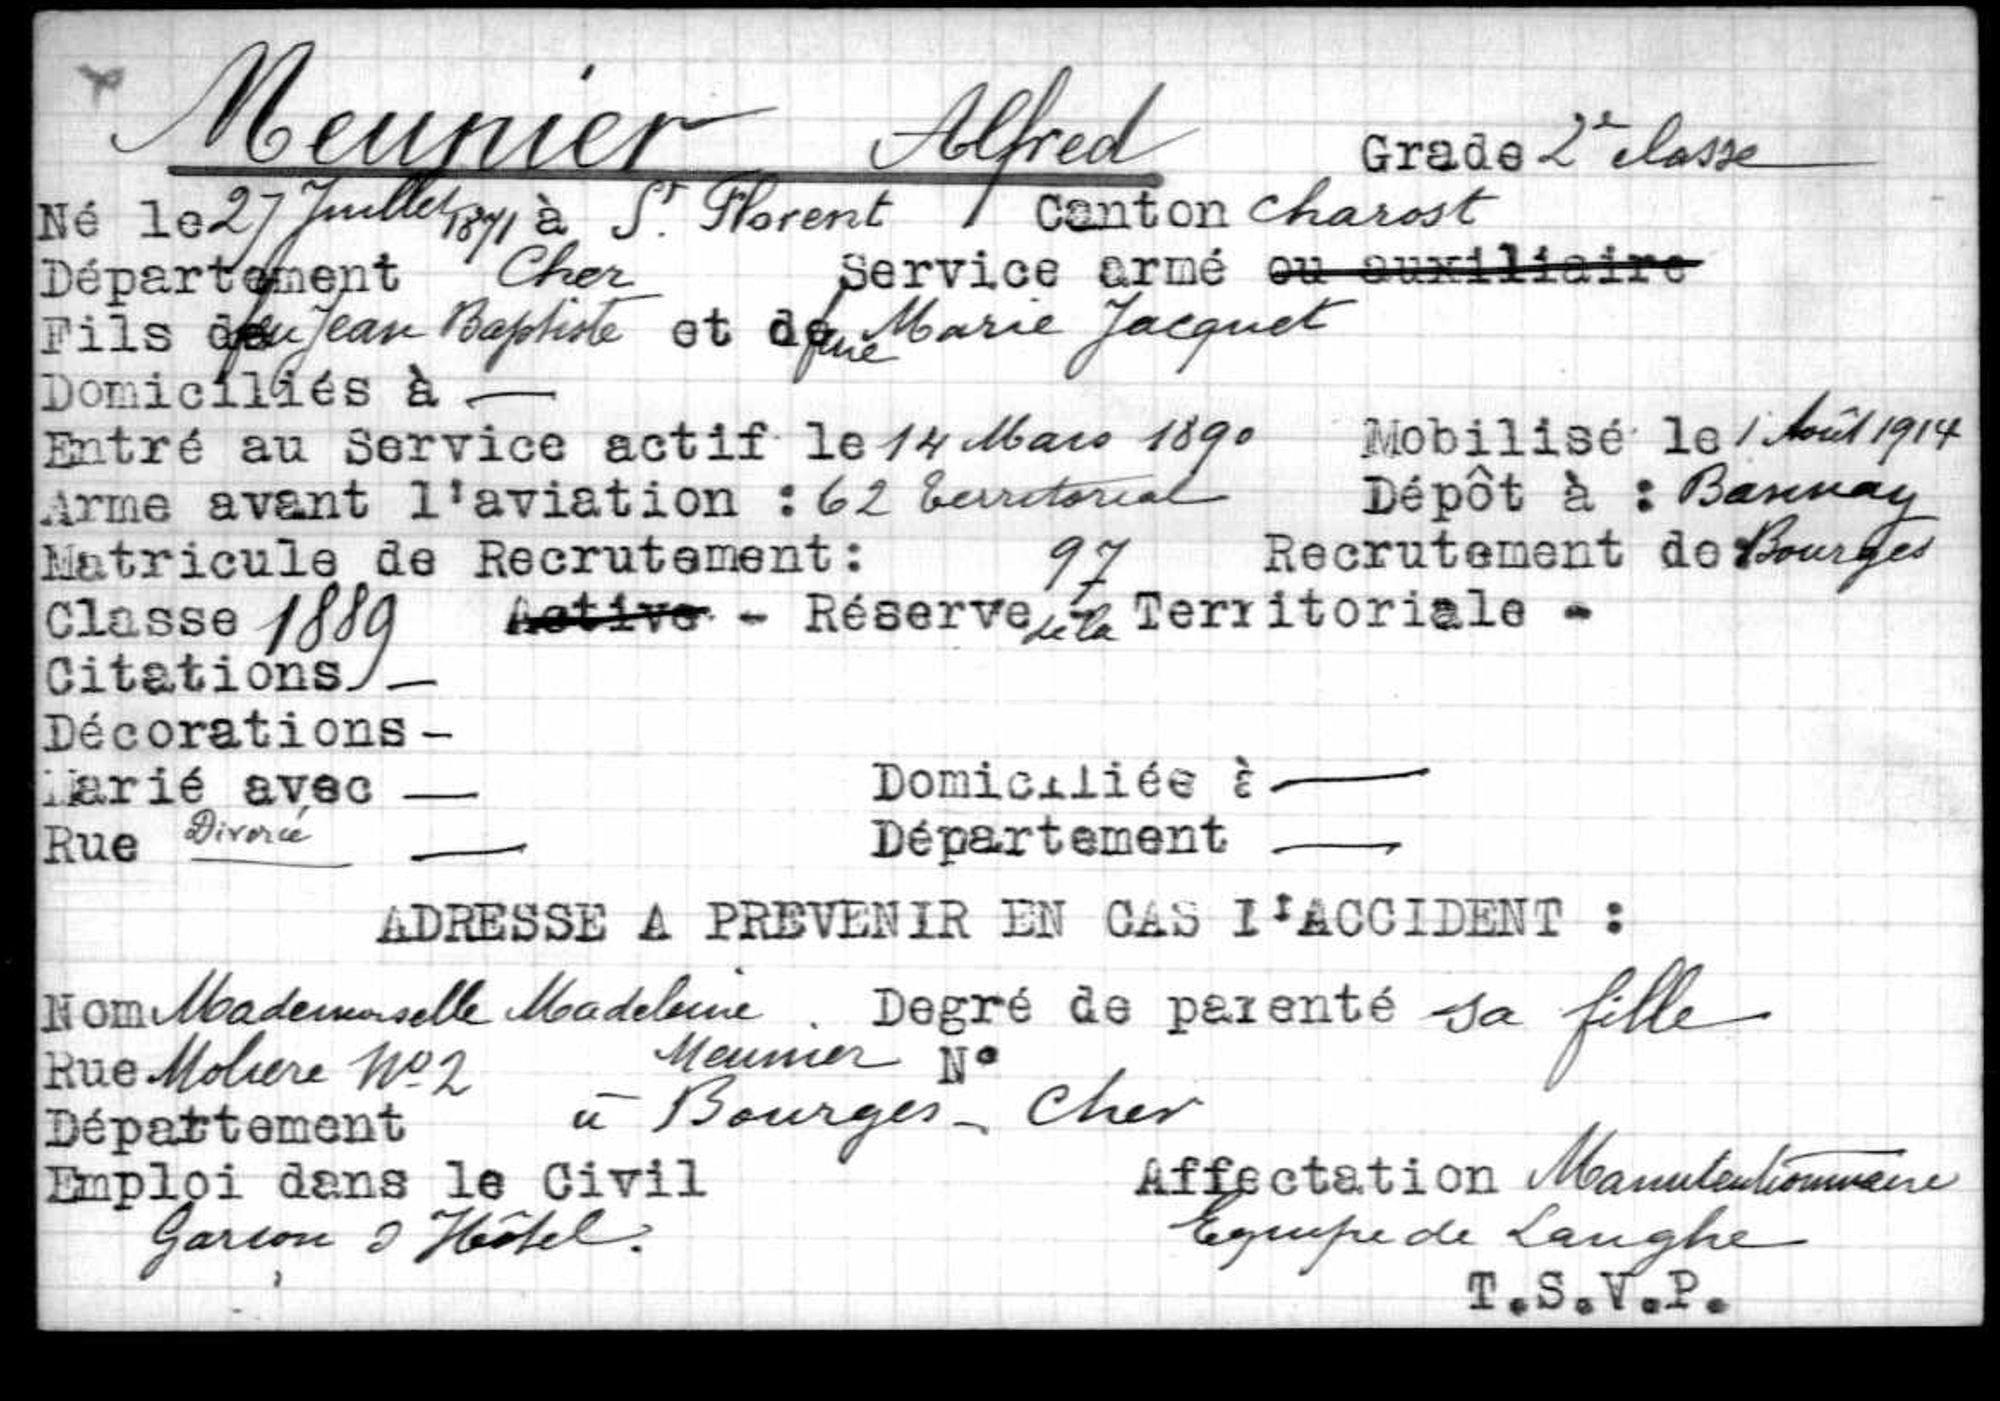 Meunier Alfred Grade 2e classe
Né le 27 Juillet 1871 à St. Florent Canton Charost
Département Cher Service armé ou auxiliaire
Fils de feu Jean Baptiste et de feue Marie Jacquet
Domiciliés à —
Entré au Service actif le 14 Mars 1890 Mobilisé le 1 Août 1914
Arme avant l'aviation : 62 Territorial Dépôt à : Bannay
Matricule de Recrutement: 97 Recrutement de Bourges
Classe 1889 Active - Réserve de la Territoriale -
Citations —
Décorations -
Marié avec — Domiciliée à —
Rue Divorcé — Département —
ADRESSE A PREVENIR EN CAS D'ACCIDENT :
Nom Mademoiselle Madeleine Degré de parenté sa fille
Rue Moliere No 2 Meunier N°
Département à Bourges - Cher
Emploi dans le Civil Affectation Manutentionnaire
Garson d'Hôtel. Equipe de Langhe
T.S.V.P.